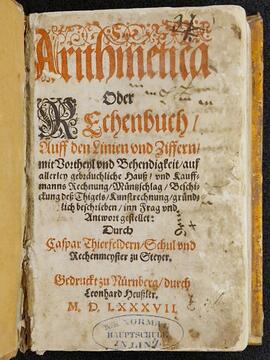 Arithmetica
Oder
Rechenbuch/
Auff den Linien vnd Ziffern/
mit Vortheyl vnd Behendigkeit/ auf
allerley gebreuchliche Hauß/ vnd Kauff-
manns Rechnung/ Müntzschlag/ Beschi-
ckung deß Thigels/ Kunstrechnung/ gründ-
lich beschrieben/ inn Frag vnd
Antwort gestellet:
Durch
Caspar Thierfeldern/ Schul vnd
Rechenmeyster zu Steyer.
Gedruckt zu Nürnberg/ durch
Leonhard Heußler.
M. D. LXXXVII.
NORMAL
HAUPTSCHULE
IN LINZ